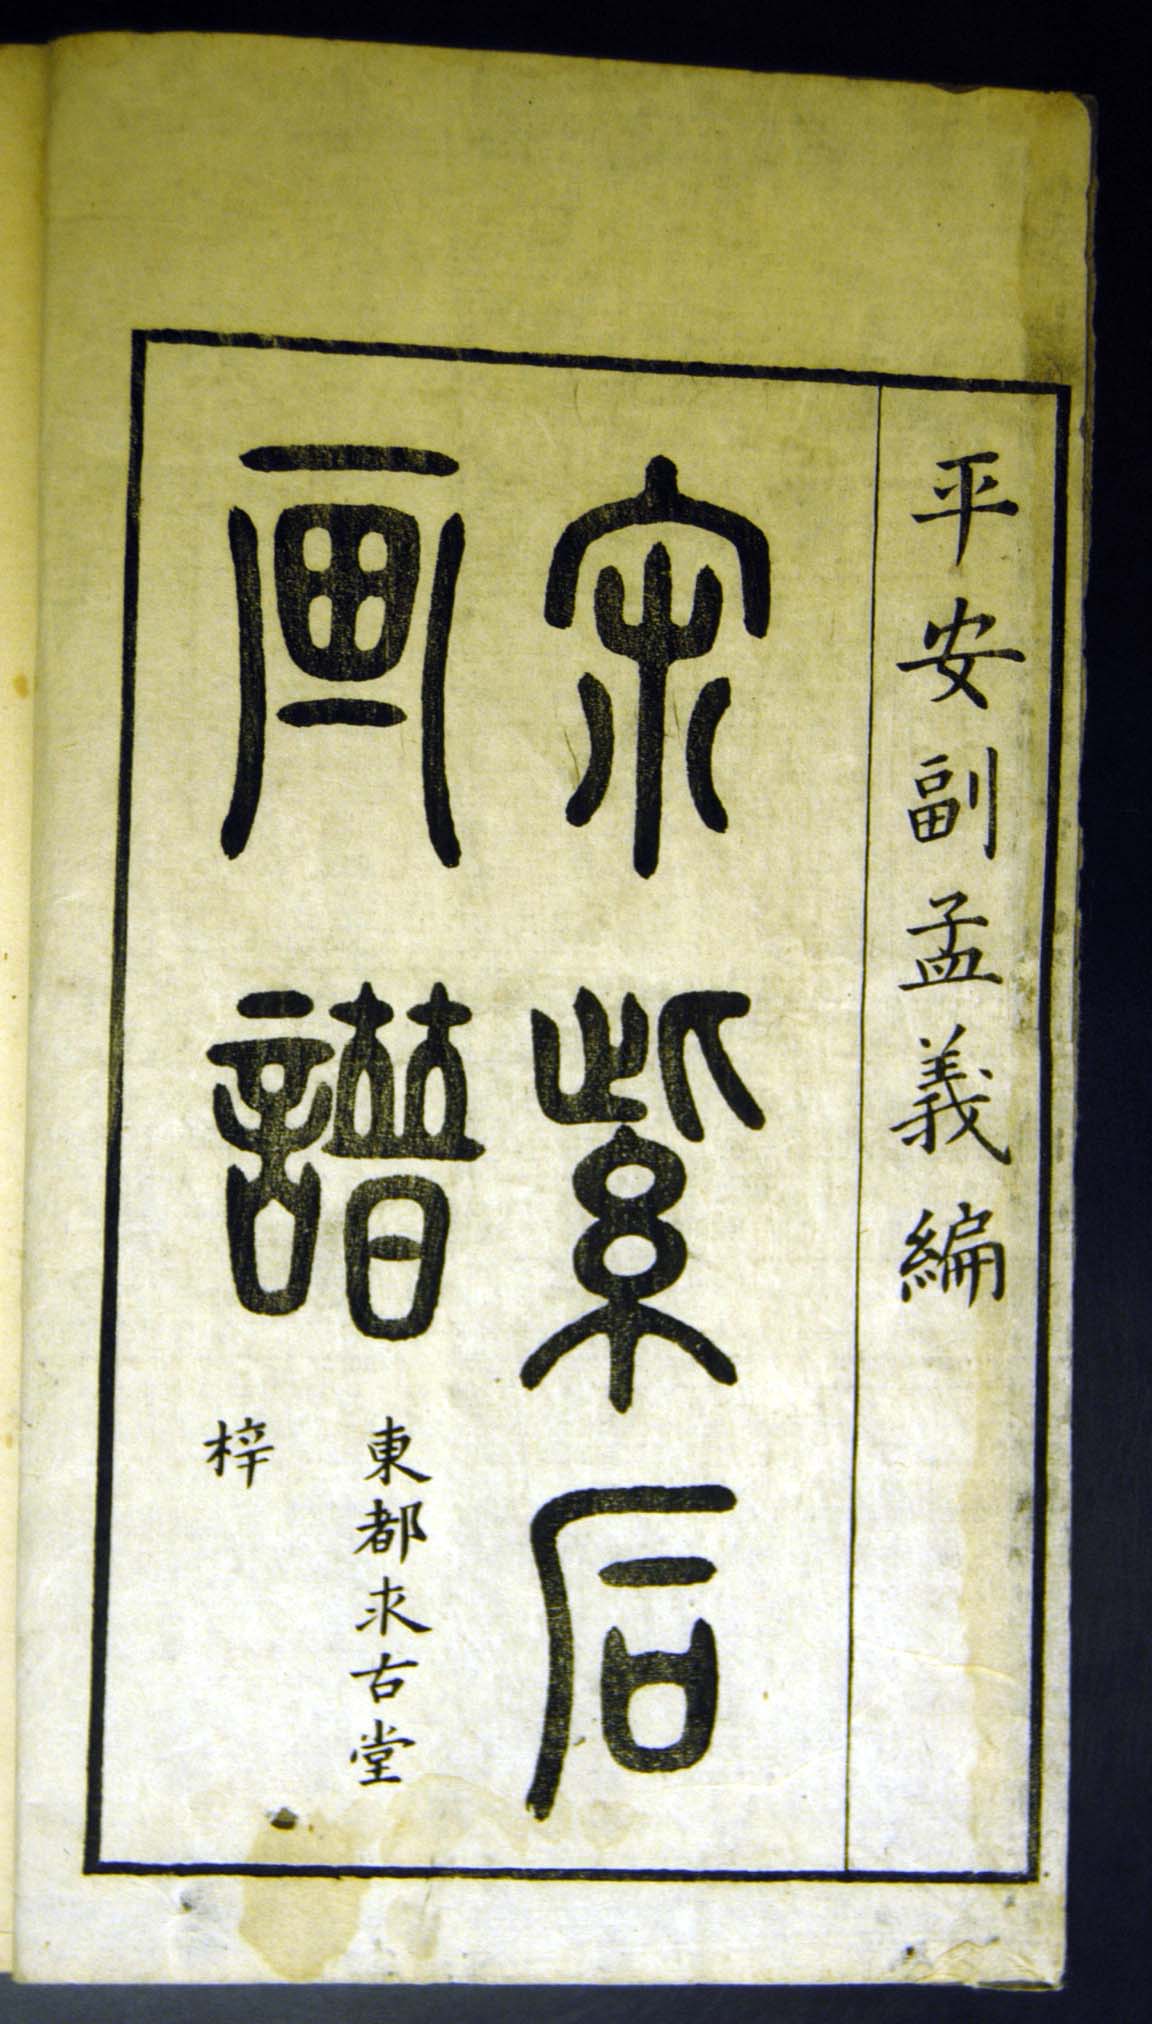 平安副孟義編
宋紫石
画譜
東都求古堂
梓